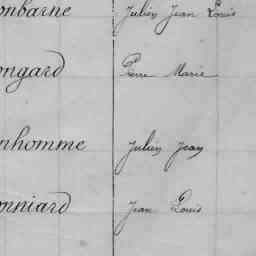 onbarne Julien Jean Louis
ongard Pierre Marie
nhomme Julien Jean
onniard Jean Louis